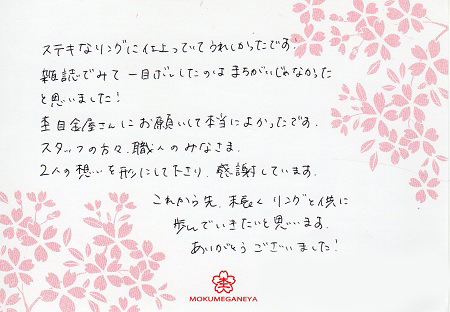 ステキなリングに仕上っていてうれしかったです。
雑誌でみて一目ぼれしたのはまちがいじゃなかった
と思いました！
杢目金屋さんにお願いして本当によかったです。
スタッフの方々、職人のみなさま。
2人の想いを形にして下さり、感謝しています。
これから先、末長くリングと供に
歩んでいきたいと思います。
ありがとうございました！
杢
MOKUMEGANEYA